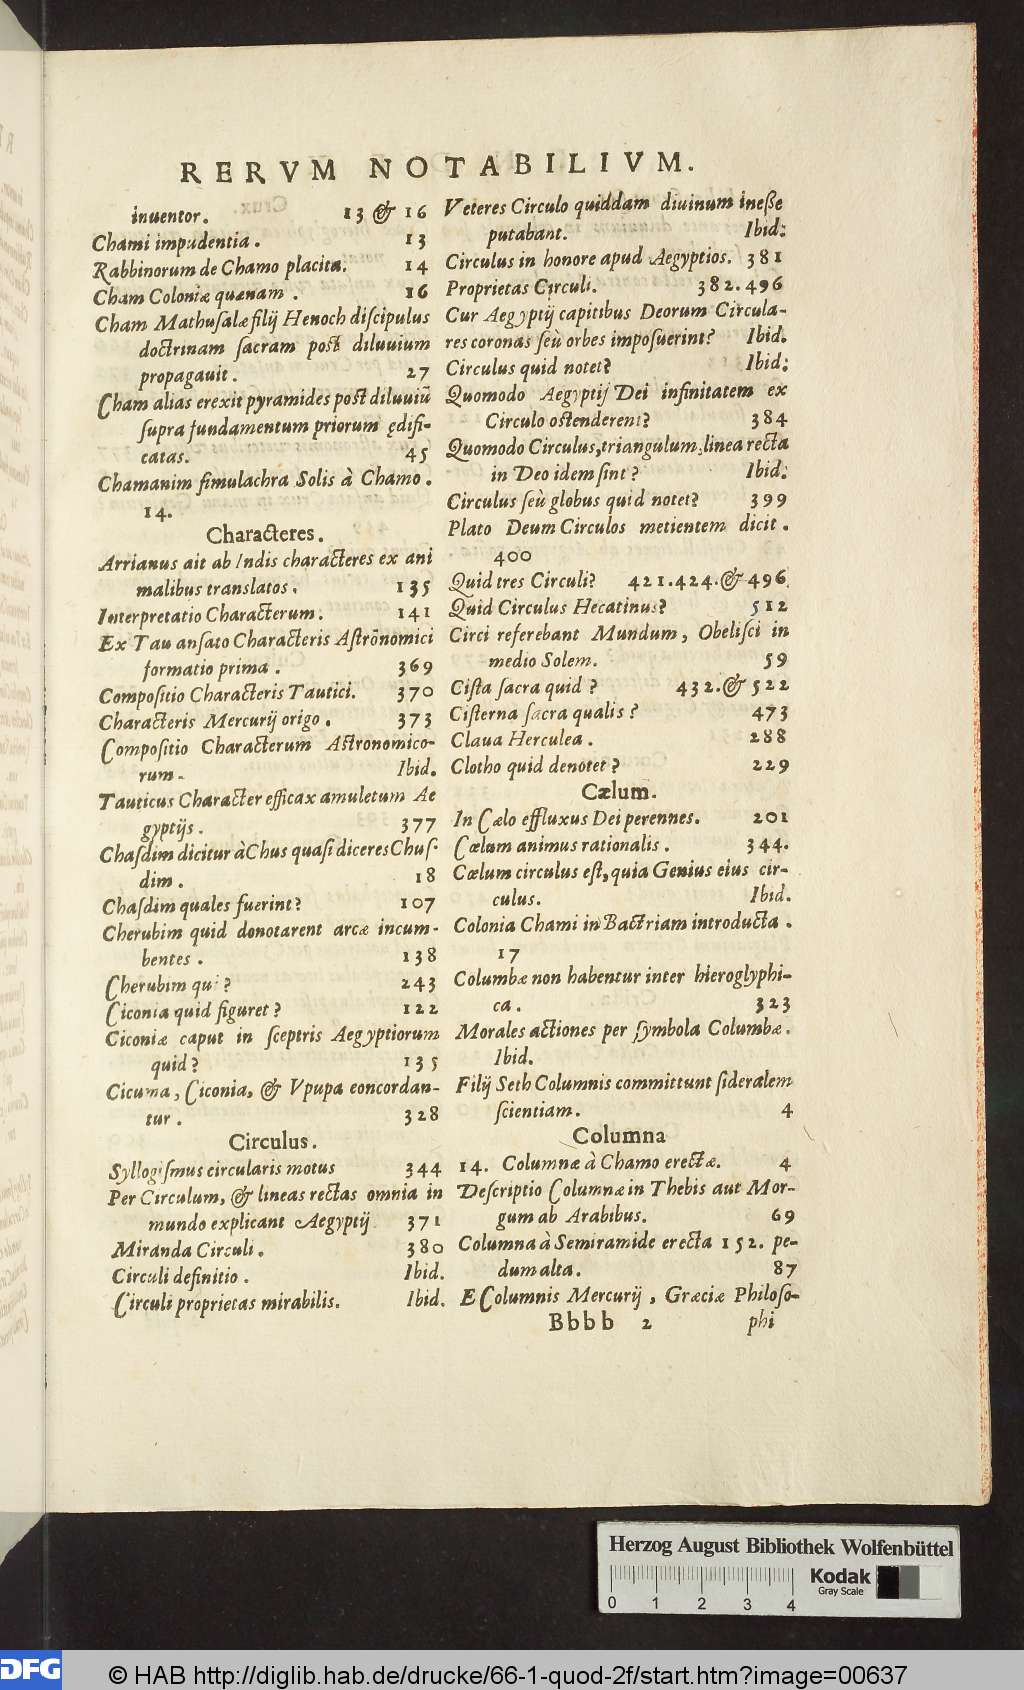 RERVM NOTABILIVM.
inuentor. 13 & 16
Chami impudentia. 13
Rabbinorum de Chamo placita. 14
Cham Coloniæ quænam. 16
Cham Mathuſalæ filij Henoch diſcipulus
doctrinam ſacram poſt diluuium
propagauit. 27
Cham alias erexit pyramides poſt diluuiũ
ſupra fundamentum priorum ędifi-
catas. 45
Chamanim ſimulachra Solis à Chamo.
14.
Characteres.
Arrianus ait ab Indis characteres ex ani
malibus translatos. 135
Interpretatio Characterum. 141
Ex Tau anſato Characteris Aſtronomici
formatio prima. 369
Compoſitio Characteris Tautici. 370
Characteris Mercurij origo. 373
Compoſitio Characterum Aſtronomico-
rum. Ibid.
Tauticus Character efficax amuletum Ae
gyptijs. 377
Chaſdim dicitur à Chus quaſi diceres Chuſ-
dim. 18
Chaſdim quales fuerint? 107
Cherubim quid donotarent arcæ incum-
bentes. 138
Cherubim qui? 243
Ciconia quid figuret? 122
Ciconiæ caput in ſceptris Aegyptiorum
quid? 135
Cicuma, Ciconia, & Vpupa concordan-
tur. 328
Circulus.
Syllogiſmus circularis motus 344
Per Circulum, & lineas rectas omnia in
mundo explicant Aegyptij 371
Miranda Circuli. 380
Circuli definitio. Ibid.
Circuli proprietas mirabilis. Ibid.
Veteres Circulo quiddam diuinum ineße
putabant. Ibid:
Circulus in honore apud Aegyptios. 381
Proprietas Circuli. 382.496
Cur Aegyptij capitibus Deorum Circula-
res coronas ſeù orbes impoſuerint? Ibid.
Circulus quid notet? Ibid:
Quomodo Aegyptij Dei infinitatem ex
Circulo oſtenderent? 384
Quomodo Circulus, triangulum, linea recta
in Deo idem ſint? Ibid:
Circulus ſeù globus quid notet? 399
Plato Deum Circulos metientem dicit.
400
Quid tres Circuli? 421.424.& 496
Quid Circulus Hecatinus? 512
Circi referebant Mundum, Obeliſci in
medio Solem. 59
Ciſta ſacra quid? 432.& 522
Ciſterna ſacra qualis? 473
Claua Herculea. 288
Clotho quid denotet? 229
Cælum.
In Cælo effluxus Dei perennes. 201
Cælum animus rationalis. 344.
Cælum circulus eſt, quia Genius eius cir-
culus. Ibid.
Colonia Chami in Bactriam introducta.
17
Columbæ non habentur inter hieroglyphi-
ca. 323
Morales actiones per ſymbola Columbæ.
Ibid.
Filij Seth Columnis committunt ſideralem
ſcientiam. 4
Columna
14. Columnæ à Chamo erectæ. 4
Deſcriptio Columnæ in Thebis aut Mor-
gum ab Arabibus. 69
Columna à Semiramide erecta 152. pe-
dum alta. 87
E Columnis Mercurij, Græciæ Philoſo-
Bbbb 2 phi
Herzog August Bibliothek Wolfenbüttel
Kodak
Gray Scale
0 1 2 3 4
DFG © HAB http://diglib.hab.de/drucke/66-1-quod-2f/start.htm?image=00637